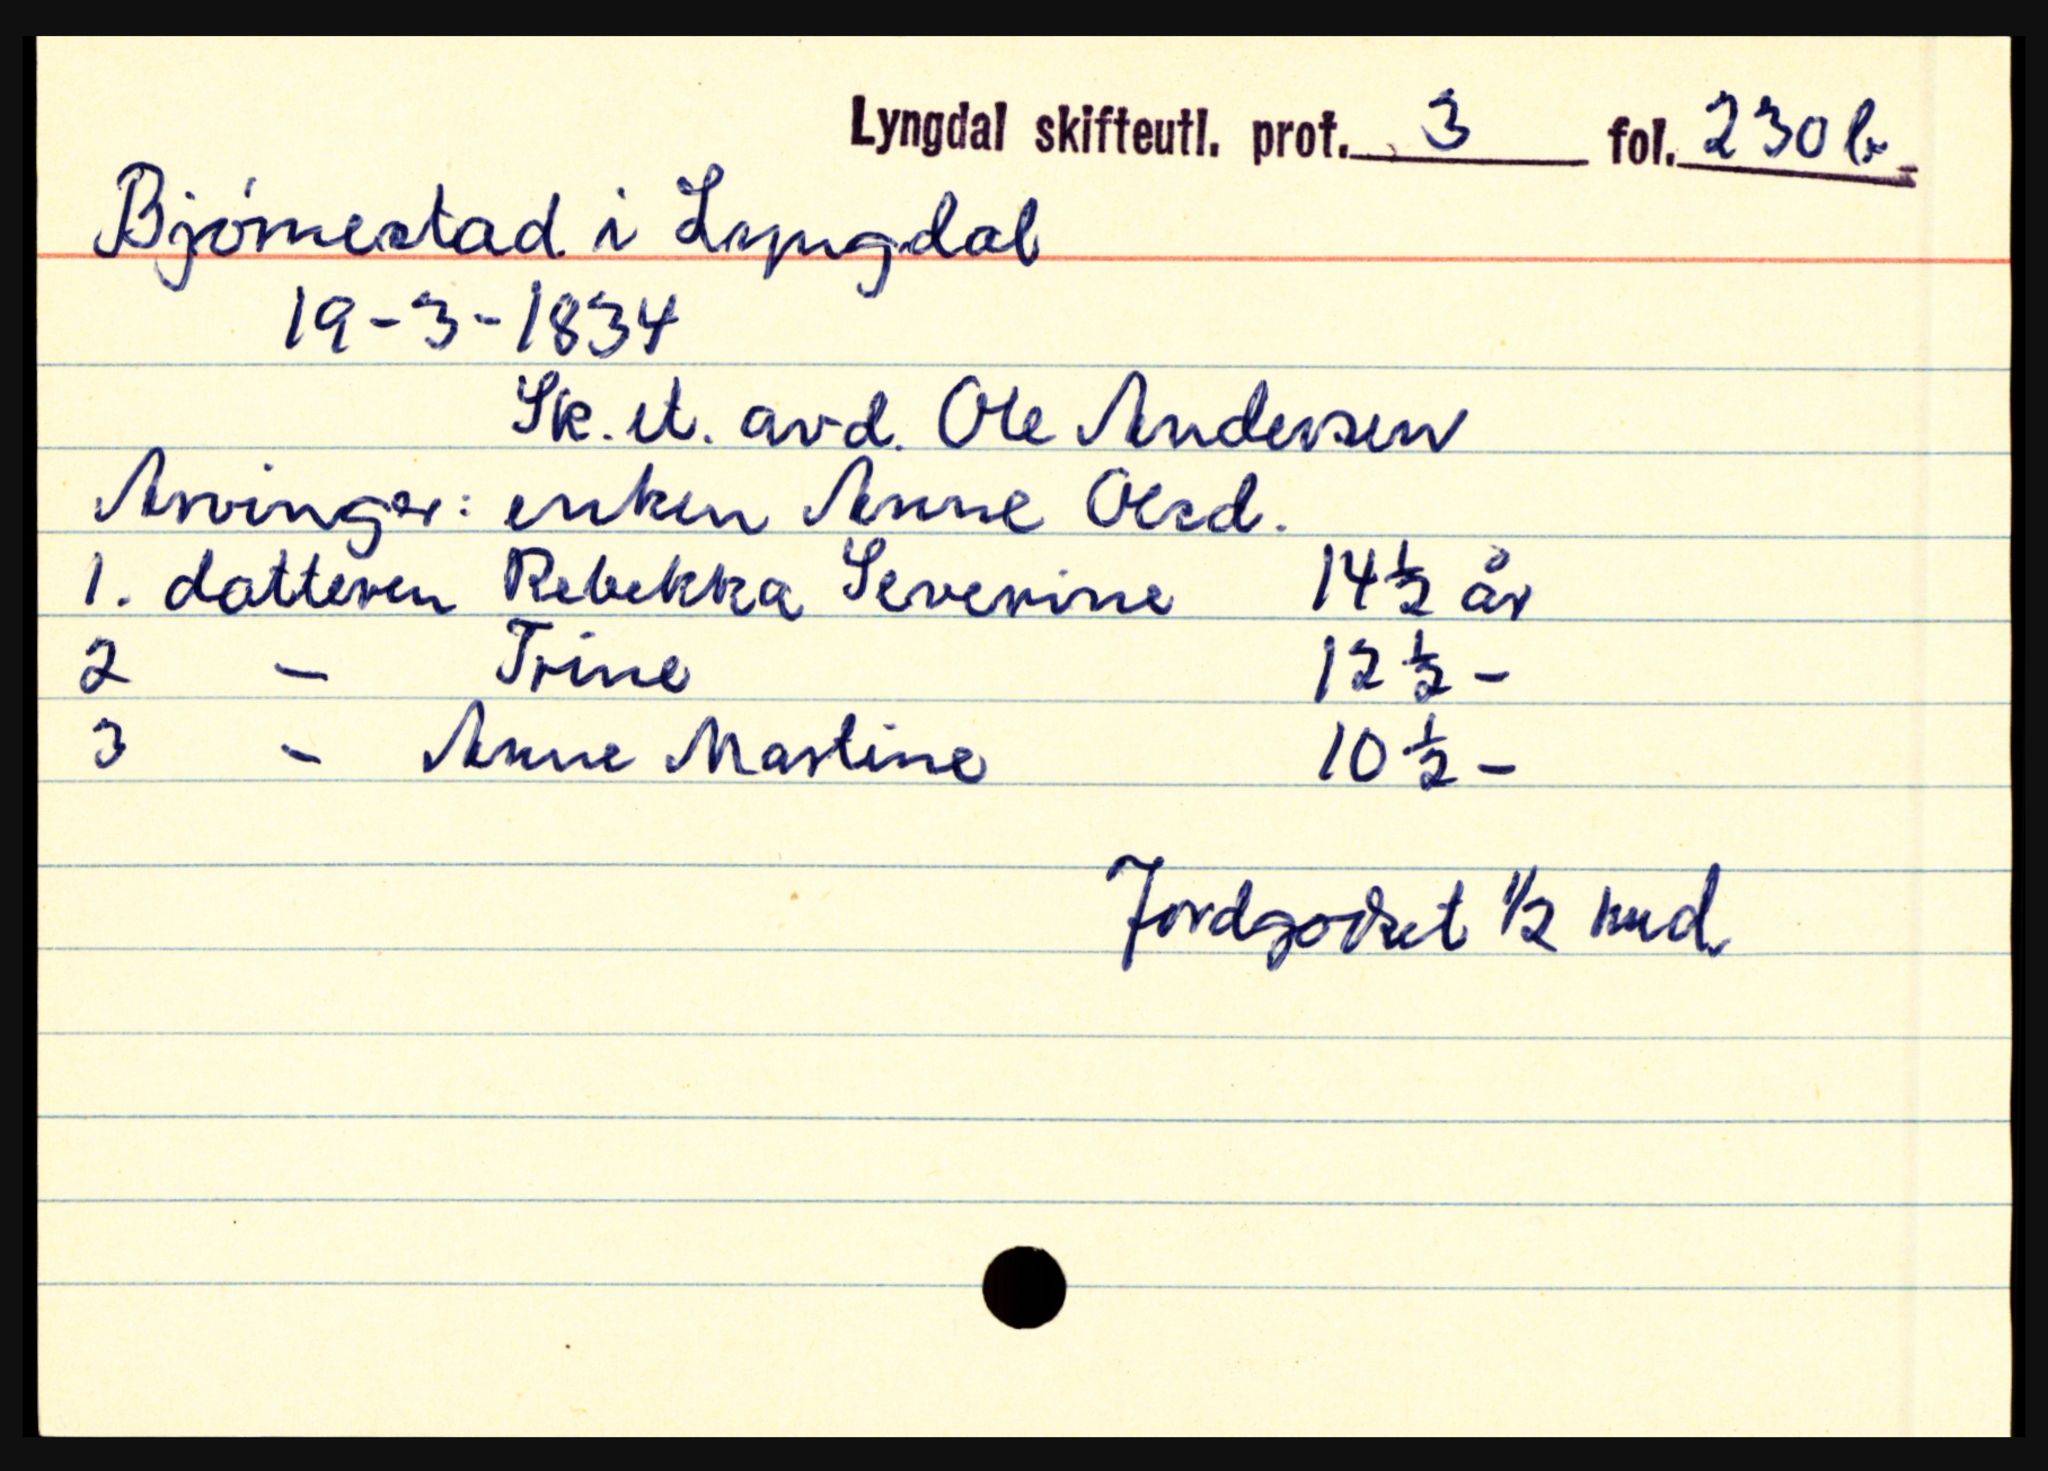 Lyngdal skifteutl. prot. 3 fol. 230 b
Bjørnestad i Lyngdal
19-3-1834
Sk. et. avd. Ole Andersen
Arvinger: enken Anne Olsd.
1. datteren Rebekka Severine 14 1/2 år
2 - Trine 12 1/2 -
3 - Anne Martine 10 1/2 -
Jordgodset 1/2 hud